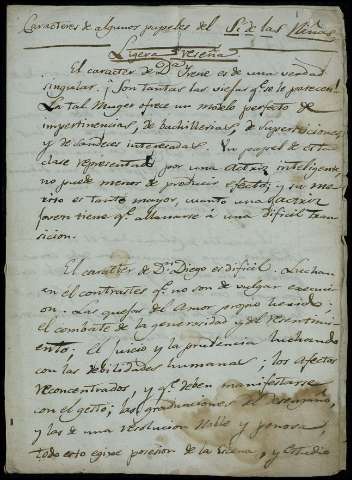 Caracteres de algunos papeles del Sí de las Niñas.
Ligera reseña
El caracter de Dª Irene es de una verdad
singular. ¡Son tantas las viejas qe. se le parecen!
La tal Muger ofrece un modelo perfecto de
impertinencias, de bachillerias, de supersticiones,
y de sandeces interesadas. Un papel de esta
clase representado por una Actriz inteligente,
no puede menos de producir efecto; y su me-
rito es tanto mayor, cuanto una Actriz
joven tiene qe. allanarse à una dificil tran-
sicion.
El caracter de Dn. Diego es dificil. Luchan
en él contrastes qe. no son de vulgar execu-
cion. Las quejas del Amor propio herido;
el combate de la generosidad y del resentimi-
ento; el juicio y la prudencia luchando
con las debilidades humanas; los afectos
reconcentrados, y qe. deben manifestarse
con el gesto; las graduaciones del desengaño,
y las de una resolucion noble y penosa,
todo esto egixe posesion de la Escena, y estudio